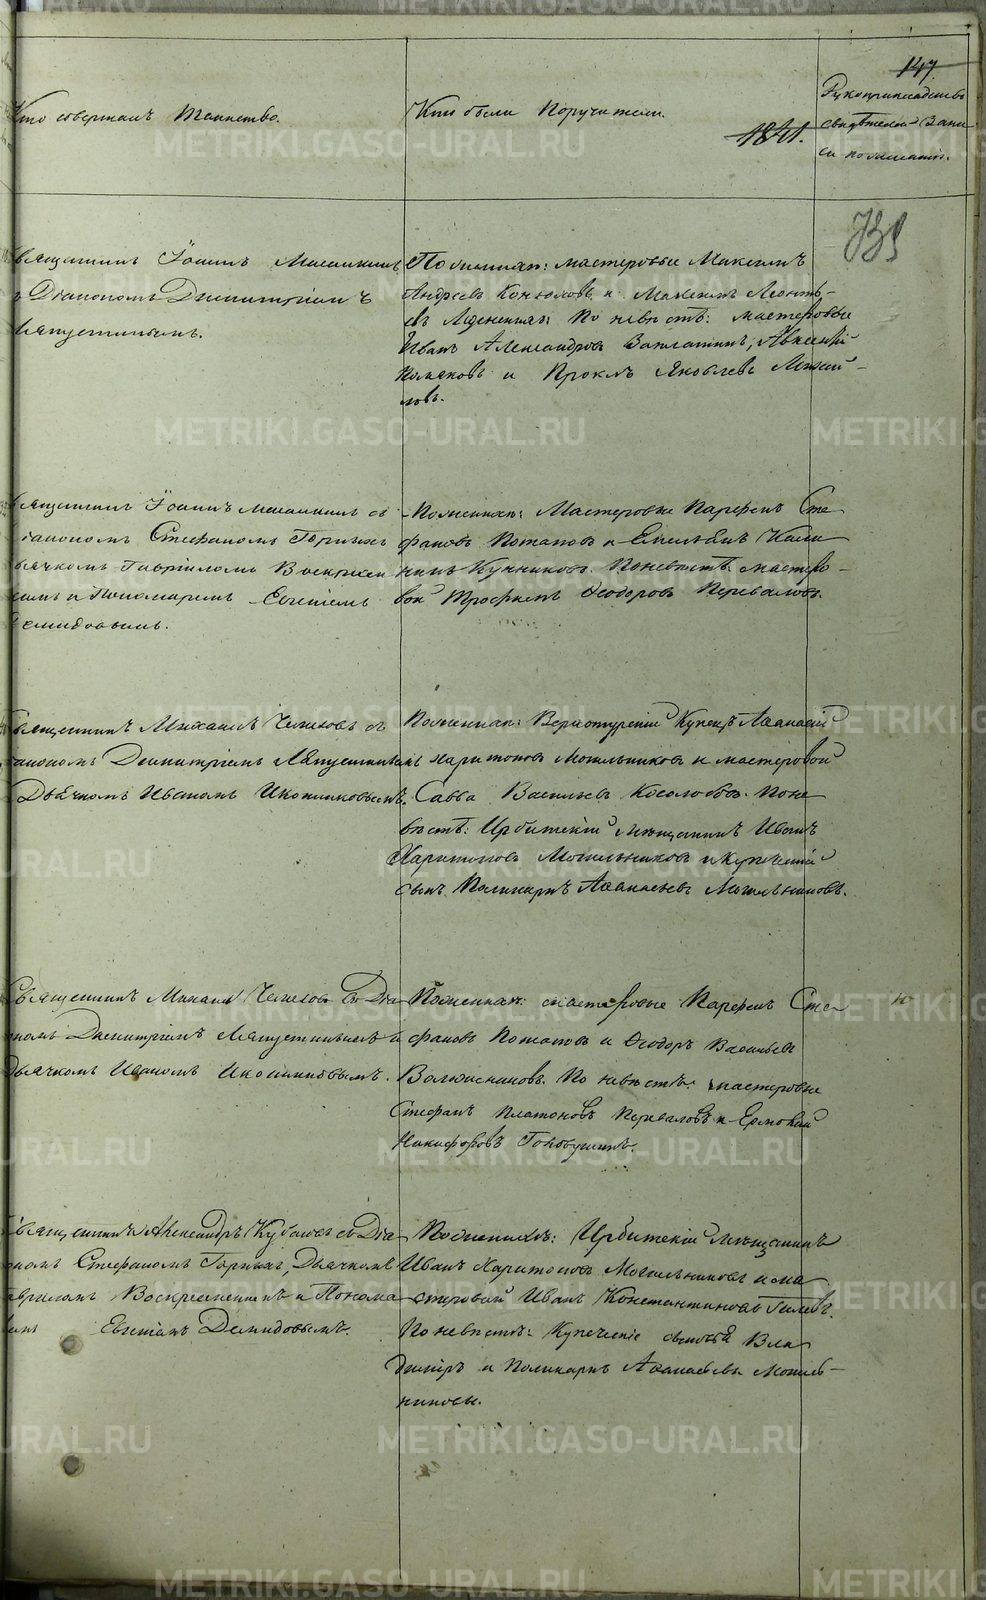 147.
Кто совершалъ Таинство.
Кто были Поручители.
1841.
Рукоприкладство
свидѣтелей Запи-
си по желанію.
739
Священникъ Іоаннъ
Діакономъ Димитріемъ
Ляпустинымъ.
По женихѣ: мастеровые Максимъ
Андреевъ и Максимъ Леонть-
евъ По невѣстѣ: мастеровые
Иванъ Александровъ Заплатинъ, Авксентій
и Проклъ Яковлевъ
ловъ.
Священникъ Іоаннъ съ
Діакономъ Стефаномъ Горныхъ
Дьячкомъ Гавріиломъ Воскресен
скимъ и Пономаремъ Евгеніемъ
Демидовымъ.
По женихѣ: Мастеровые Парфенъ Сте
фановъ Потаповъ и Емельянъ Кали
нинъ Кунниковъ. По невѣстѣ: мастеро-
вой Трофимъ Ѳеодоровъ Переваловъ.
Священникъ Михаилъ Челновъ съ
Діакономъ Димитріемъ Ляпустинымъ
Дьячкомъ Иваномъ Иконниковымъ.
По женихѣ: Верхотурскій Купецъ Аѳанасій
Харитоновъ Могильниковъ и мастеровой
Савва Васильевъ Косолобовъ. По не
вѣстѣ: Ирбитскій мѣщанинъ Иванъ
Харитоновъ Могильниковъ и Купеческій
сынъ Поликарпъ Аѳанасьевъ Могильниковъ.
Священникъ Михаилъ Челновъ съ Діа
кономъ Димитріемъ Ляпустинымъ и
Дьячкомъ Иваномъ Иконниковымъ.
По женихѣ: мастеровые Парфенъ Сте
фановъ Потаповъ и Ѳеодоръ Васильевъ
По невѣстѣ: мастеровые
Стефанъ Платоновъ Переваловъ и Ермолай
Никифоровъ Голобушинъ.
Священникъ Александръ съ Діа
кономъ Стефаномъ Горныхъ, Дьячкомъ
Гавріиломъ Воскресенскимъ и Понома
ремъ Евгеніемъ Демидовымъ.
По женихѣ: Ирбитскій мѣщанинъ
Иванъ Харитоновъ Могильниковъ и ма
стеровой Иванъ Константиновъ Гилевъ.
По невѣстѣ: Купеческіе сыновья Вла
димиръ и Поликарпъ Аѳанасьевы Могиль-
никовы.
METRIKI.GASO-URAL.RU